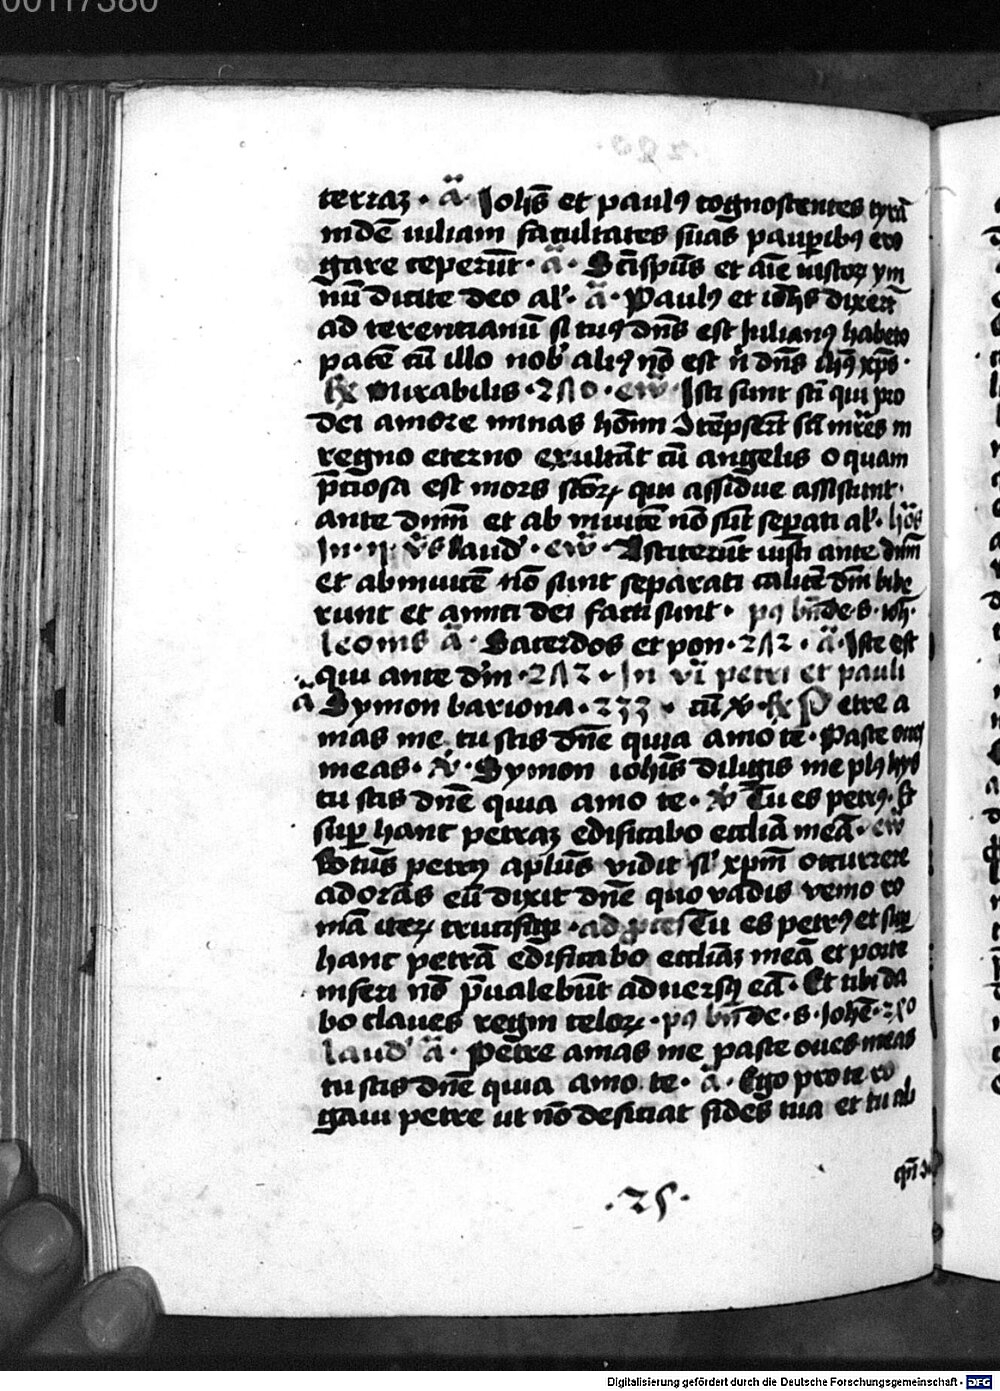 00117380
terraz · ä · Johēs et paulꝰ cognoscentes tyrā
nidē iuliani facultates suas pauꝑibꝯ ero
gare ceperūt · ä · Sc̄i spūs et aīe iustoꝝ ym
nū dicite deo alˀ · ä · Paulꝰ et ioh̄s dixerūt
ad terentianū si tuꝰ dn̄s est Julianꝰ habeto
pacē cū illo nobˀ aliꝰ nō est n̄ dn̄s ih̄s xp̄s ·
Mirabilis · Isti sunt sc̄i qui pro
dei amore minas hōīm sc̄i mr̄es in
regno eterno exultāt cū angelis o quam
p̄ciosa est mors sc̄oꝝ qui assidue assistunt
ante dnm̄ et ab inuicē nō sūt sepati alˀ ·
laudˀ · Astiterūt iusti ante dnm̄
et ab inuicē nō sunt separati calicē dn̄i bibe
runt et amici dei facti sunt · pꝰ bn̄de · s · ioh̄ ·
leonis ä · Sacerdos et pon · 2A2 · ä · Iste est
qui ante dm̄ · 2A2 · In vī petri et pauli
ä Symon bariona · 233 · cū ꝟ · Petre a
mas me tu scis dn̄e quia amo te · Pasce oues
meas · ꝟ · Symon ioh̄is diligis me plꝰ hys
tu scis dn̄e quia amo te · ꝟ Tu es petrꝰ · Et
suꝑ hanc petraz edificabo eccliā meā ·
petrꝰ aplūs vidit sˀ xpm̄ occurrere
adorās eū dixit dn̄e quo vadis venio ro
mā iteꝝ crucifigi · ad Tu es petrꝰ et suꝑ
hanc petrā edificabo eccliaz meā et porte
inferi nō p̄ualebūt aduersꝰ eā · Et tibi da
bo claues regni celoꝝ · pꝰ bn̄de · s · Johē ·
laudˀ ä · Petre amas me pasce oues meas
tu scis dn̄e quia amo te · ä · Ego pro te ro
gaui petre ut nō deficiat fides tua et tu ali
qn̄
· 25 ·
Digitalisierung gefördert durch die Deutsche Forschungsgemeinschaft - DFG